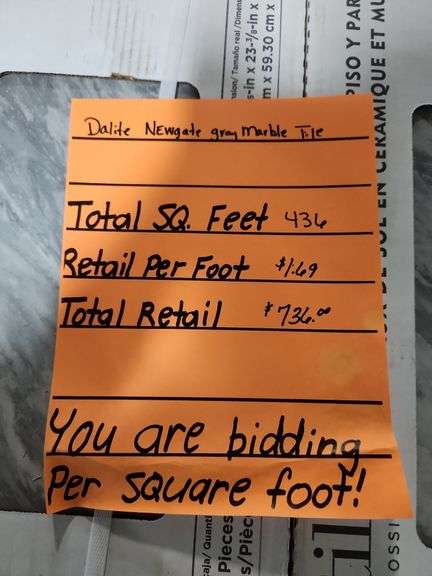 Dalite Newgate gray Marble Tile
Total SQ. Feet 436
Retail Per Foot $1.69
Total Retail $736.00
You are bidding
Per square foot!
nsion/ Tamaño real /Dimen
-in x 23-3/8-in x
m x 59.30 cm x
PISO Y PAR
DE SOL EN CÉRAMIQUE ET MU
caja/ Quanti
Pieces
s/Pièc
il
OSSI